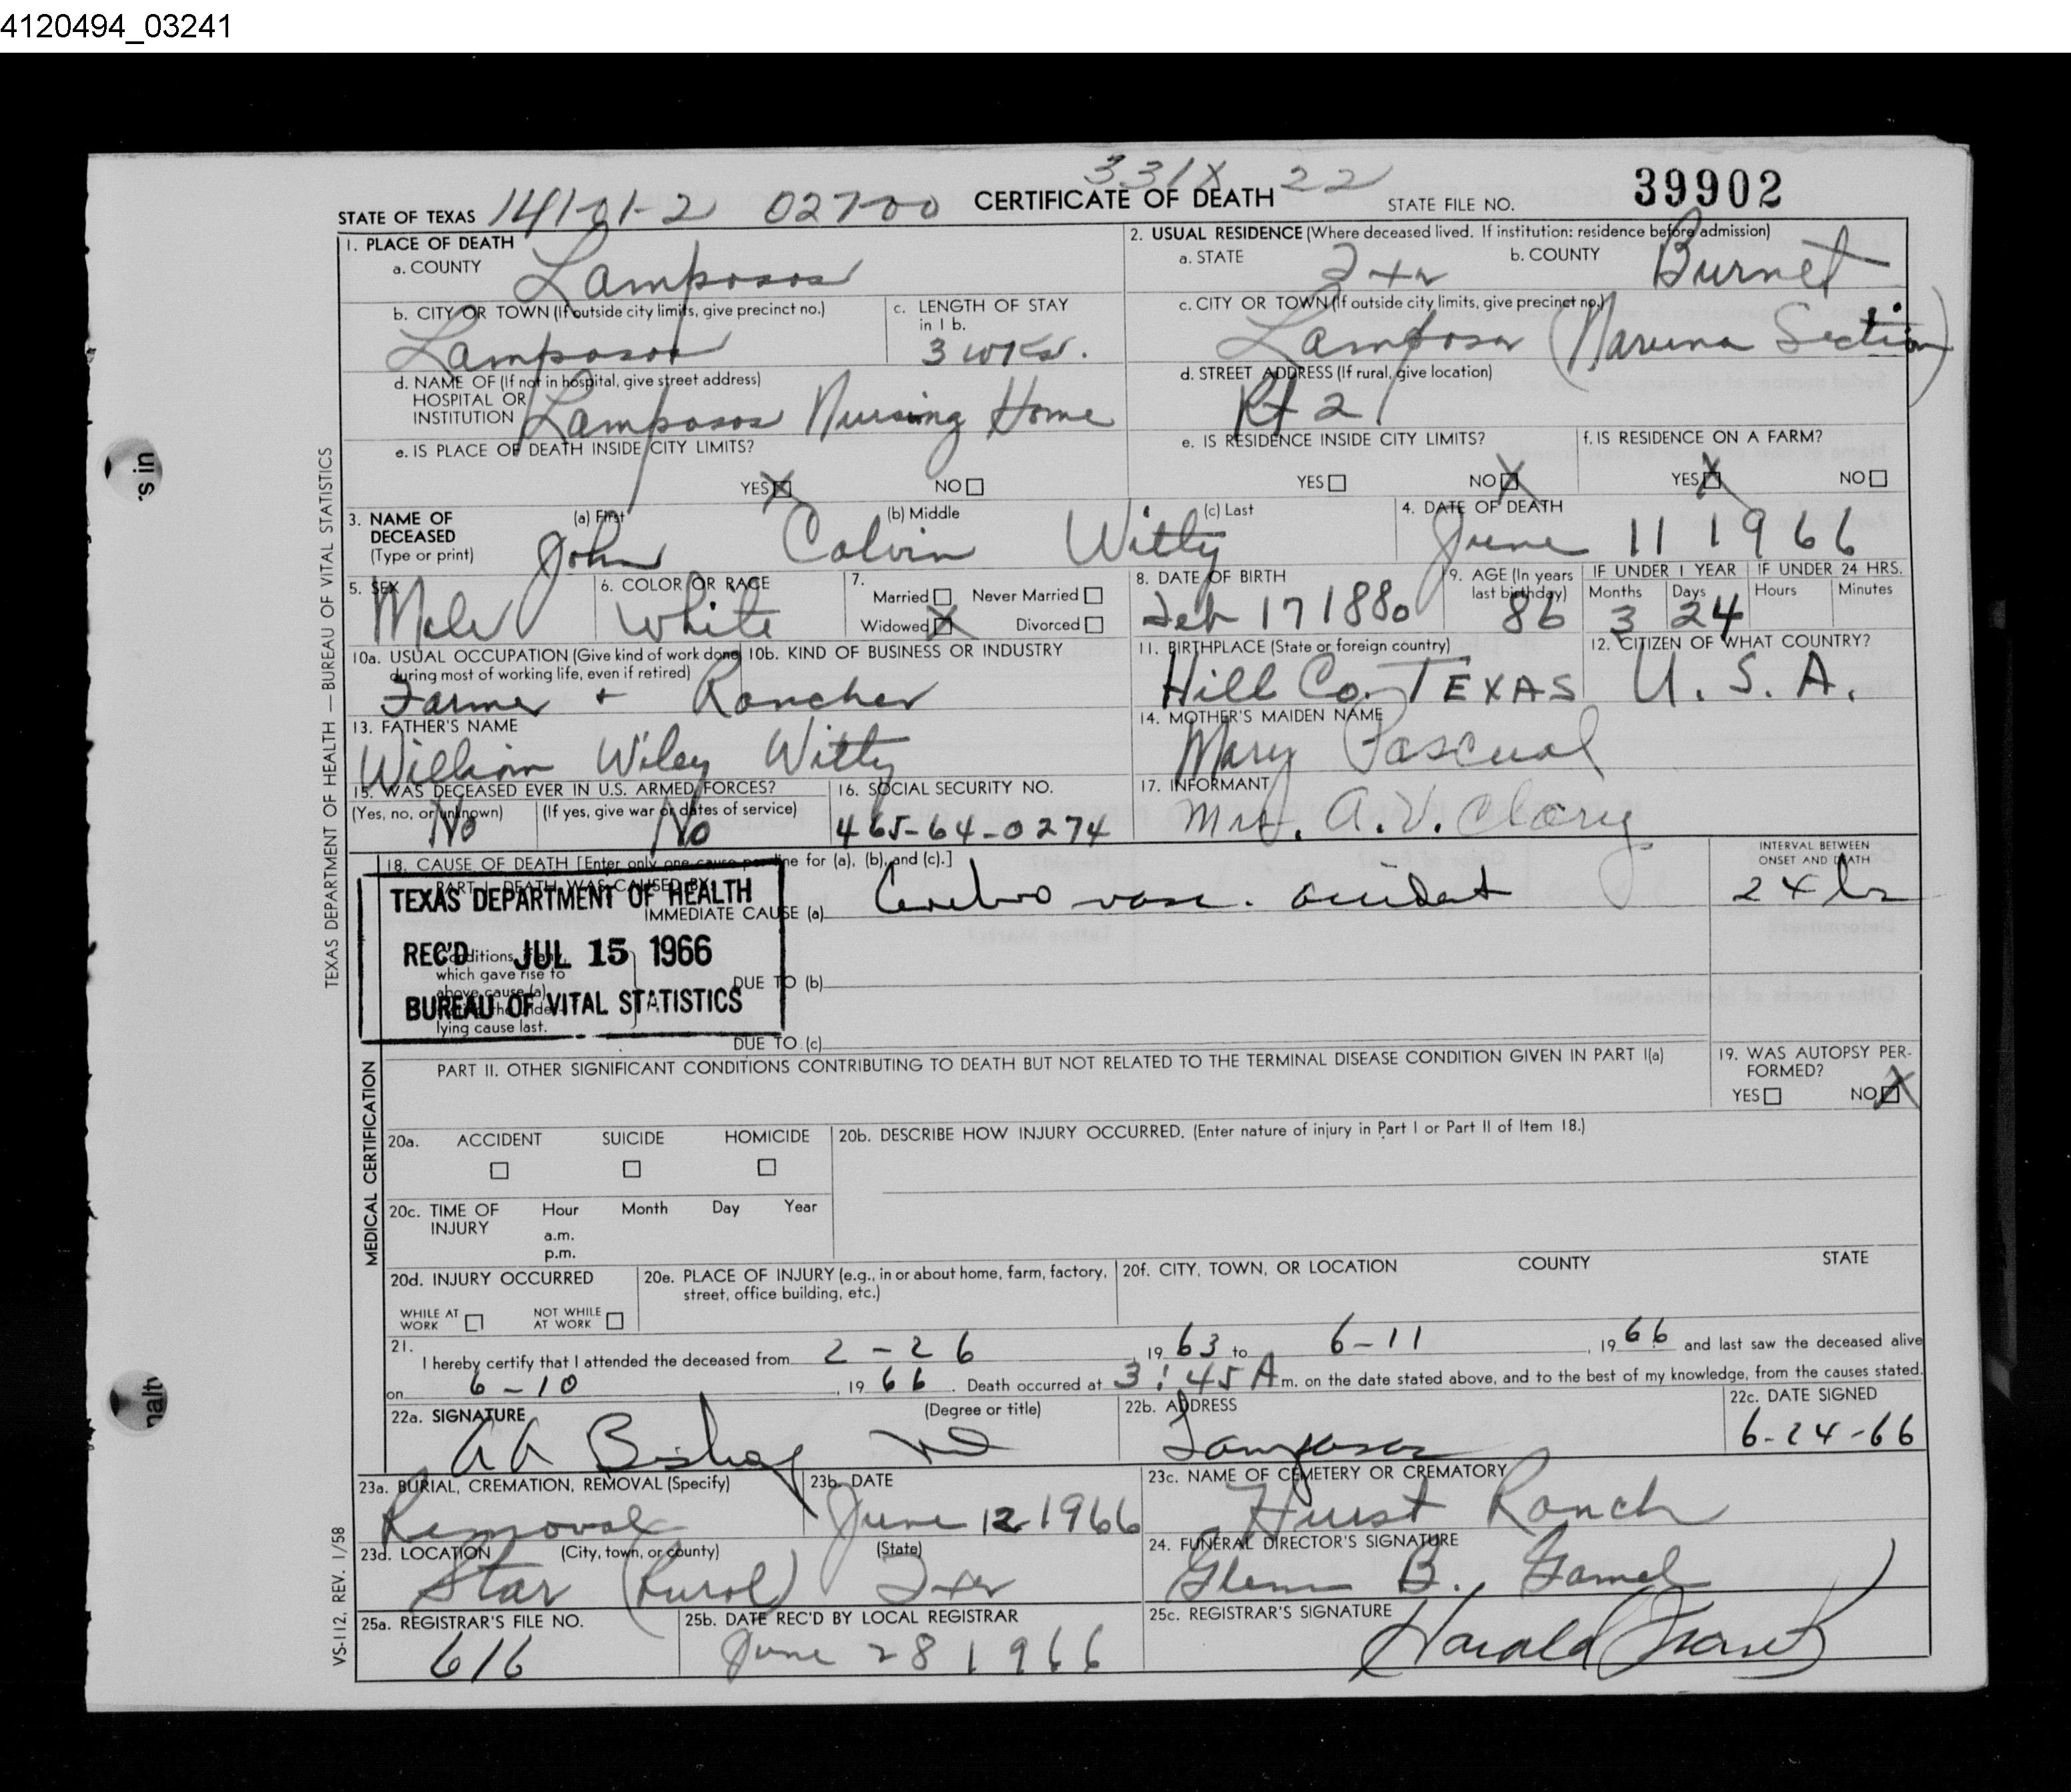 4120494_03241
331X 22
STATE OF TEXAS 14101-2 02700 CERTIFICATE OF DEATH STATE FILE NO. 39902
1. PLACE OF DEATH
a. COUNTY Lampasas
2. USUAL RESIDENCE (Where deceased lived. If institution: residence before admission)
a. STATE Tex b. COUNTY Burnet
b. CITY OR TOWN (If outside city limits, give precinct no.) Lampasas
c. LENGTH OF STAY in 1 b. 3 wks.
c. CITY OR TOWN (If outside city limits, give precinct no.) Lampasas (Naruna Section)
d. NAME OF (If not in hospital, give street address) HOSPITAL OR INSTITUTION Lampasas Nursing Home
d. STREET ADDRESS (If rural, give location) Rt 2
e. IS PLACE OF DEATH INSIDE CITY LIMITS?
YES NO
e. IS RESIDENCE INSIDE CITY LIMITS?
YES NO
f. IS RESIDENCE ON A FARM?
YES NO
3. NAME OF DECEASED (Type or print)
(a) First (b) Middle (c) Last
John Calvin Witty
4. DATE OF DEATH
June 11 1966
5. SEX Male
6. COLOR OR RACE White
7. Married Never Married
Widowed Divorced
8. DATE OF BIRTH Feb 17 1880
9. AGE (In years last birthday) 86
IF UNDER 1 YEAR Months 3 Days 24
IF UNDER 24 HRS. Hours Minutes
10a. USUAL OCCUPATION (Give kind of work done during most of working life, even if retired)
10b. KIND OF BUSINESS OR INDUSTRY
Farmer + Rancher
11. BIRTHPLACE (State or foreign country) Hill Co. TEXAS
12. CITIZEN OF WHAT COUNTRY? U. S. A.
13. FATHER'S NAME
William Wiley Witty
14. MOTHER'S MAIDEN NAME
Mary Pascual
15. WAS DECEASED EVER IN U.S. ARMED FORCES?
(Yes, no, or unknown) No (If yes, give war or dates of service) No
16. SOCIAL SECURITY NO.
465-64-0274
17. INFORMANT
Mrs. A. V. Clary
18. CAUSE OF DEATH [Enter only one cause per line for (a), (b), and (c).]
PART I. DEATH WAS CAUSED BY:
IMMEDIATE CAUSE (a) Cerebro vasc. accident
INTERVAL BETWEEN ONSET AND DEATH
24 hr
TEXAS DEPARTMENT OF HEALTH
REC'D JUL 15 1966
BUREAU OF VITAL STATISTICS
Conditions, if any, which gave rise to above cause (a) stating the underlying cause last.
DUE TO (b)
DUE TO (c)
PART II. OTHER SIGNIFICANT CONDITIONS CONTRIBUTING TO DEATH BUT NOT RELATED TO THE TERMINAL DISEASE CONDITION GIVEN IN PART I(a)
19. WAS AUTOPSY PERFORMED?
YES NO
20a. ACCIDENT SUICIDE HOMICIDE
20b. DESCRIBE HOW INJURY OCCURRED. (Enter nature of injury in Part I or Part II of Item 18.)
20c. TIME OF INJURY Hour Month Day Year
a.m.
p.m.
20d. INJURY OCCURRED
WHILE AT WORK NOT WHILE AT WORK
20e. PLACE OF INJURY (e.g., in or about home, farm, factory, street, office building, etc.)
20f. CITY, TOWN, OR LOCATION COUNTY STATE
21. I hereby certify that I attended the deceased from 2-26, 1963 to 6-11, 1966 and last saw the deceased alive
on 6-10, 1966. Death occurred at 3:45 A m. on the date stated above, and to the best of my knowledge, from the causes stated.
22a. SIGNATURE (Degree or title)
AA Bishop MD
22b. ADDRESS
Lampasas
22c. DATE SIGNED
6-24-66
23a. BURIAL, CREMATION, REMOVAL (Specify)
Removal
23b. DATE
June 12 1966
23c. NAME OF CEMETERY OR CREMATORY
Hurst Ranch
23d. LOCATION (City, town, or county) (State)
Star (Rural) Tex
24. FUNERAL DIRECTOR'S SIGNATURE
Glenn B. Gamel
25a. REGISTRAR'S FILE NO.
616
25b. DATE REC'D BY LOCAL REGISTRAR
June 28 1966
25c. REGISTRAR'S SIGNATURE
Harald
TEXAS DEPARTMENT OF HEALTH — BUREAU OF VITAL STATISTICS
MEDICAL CERTIFICATION
VS-112, REV. 1/58
's in
nalty